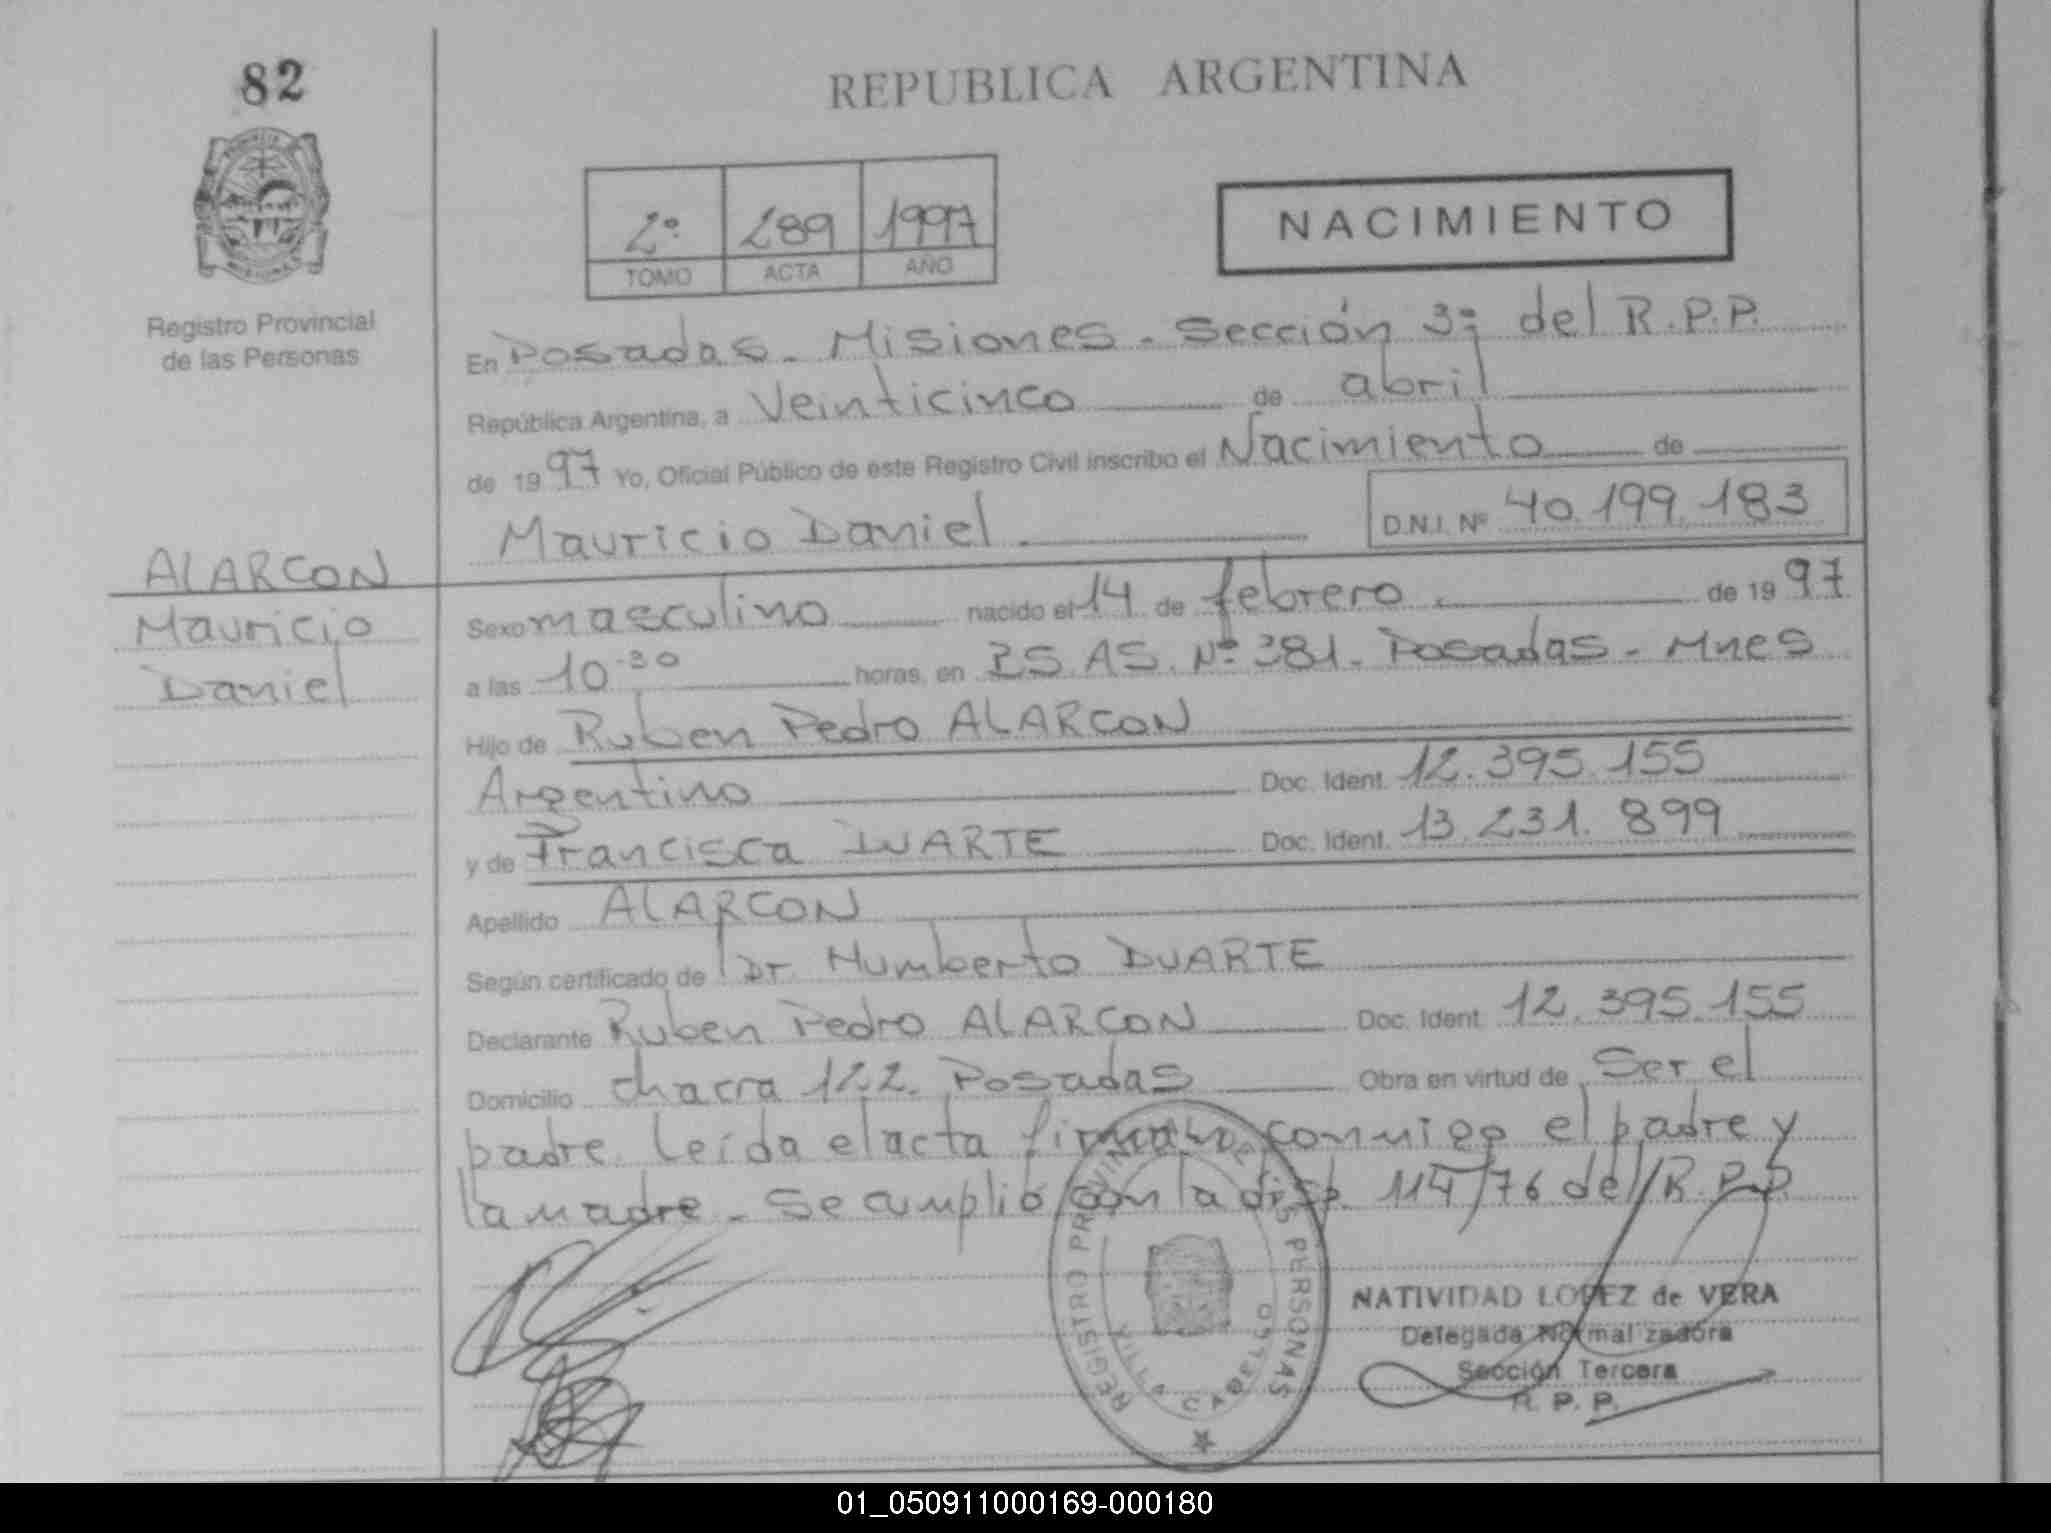 82
REPUBLICA ARGENTINA
2º 289 1997
TOMO ACTA AÑO
NACIMIENTO
Registro Provincial
de las Personas
En Posadas - Misiones - Sección 3ª del R.P.P.
República Argentina, a Veinticinco de abril
de 1997 Yo, Oficial Público de este Registro Civil inscribo el Nacimiento de
Mauricio Daniel D.N.I. Nº 40.199.183
ALARCON
Mauricio
Daniel
Sexo masculino nacido el 14 de febrero de 1997
a las 10.30 horas, en BS. AS. Nº 381. Posadas - Mnes
Hijo de Ruben Pedro ALARCON
Argentino Doc. Ident. 12.395.155
y de Francisca DUARTE Doc. Ident. 13.231.899
Apellido ALARCON
Según certificado de Dr. Humberto DUARTE
Declarante Ruben Pedro ALARCON Doc. Ident. 12.395.155
Domicilio chacra 122. Posadas Obra en virtud de Ser el
padre. Leída el acta firman conmigo el padre y
la madre - Se cumplió con la disp. 114/76 del R.P.P.
REGISTRO PROVINCIAL DE LAS PERSONAS
VILLA CABELLO
NATIVIDAD LOPEZ de VERA
Delegada Normalizadora
Sección Tercera
R. P. P.
01_050911000169-000180